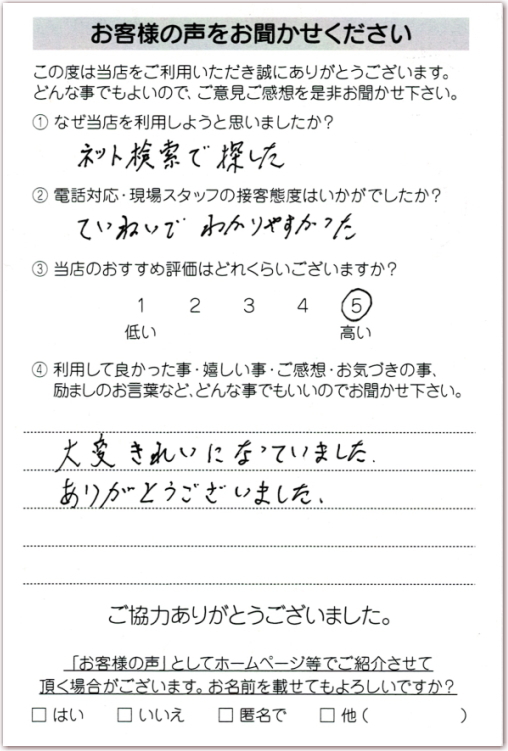 お客様の声をお聞かせください
この度は当店をご利用いただき誠にありがとうございます。
どんな事でもよいので、ご意見ご感想を是非お聞かせ下さい。
① なぜ当店を利用しようと思いましたか？
ネット検索で探した
② 電話対応・現場スタッフの接客態度はいかがでしたか？
ていねいで わかりやすかった
③ 当店のおすすめ評価はどれくらいございますか？
1 2 3 4 5
低い 高い
④ 利用して良かった事・嬉しい事・ご感想・お気づきの事、
励ましのお言葉など、どんな事でもいいのでお聞かせ下さい。
大変きれいになっていました.
ありがとうございました、
ご協力ありがとうございました。
「お客様の声」としてホームページ等でご紹介させて
頂く場合がございます。お名前を載せてもよろしいですか？
□ はい □ いいえ □ 匿名で □ 他（ ）